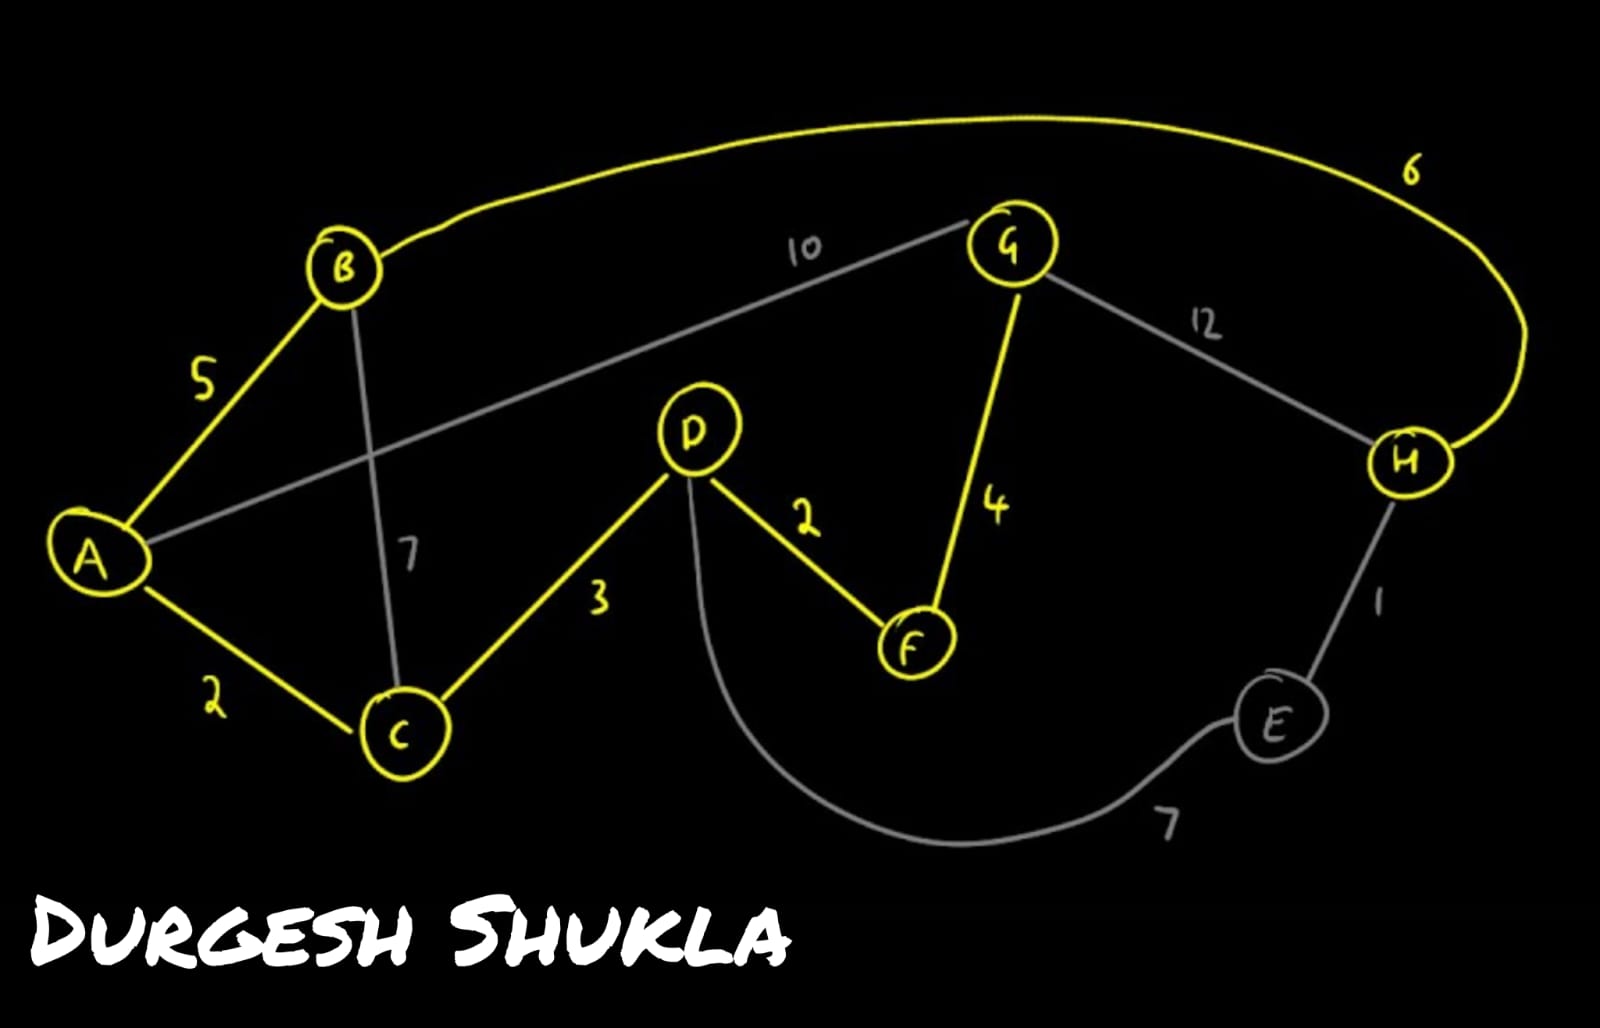 6
B
10
G
12
5
D
H
2
4
A
7
3
1
F
2
C
E
7
DURGESH SHUKLA